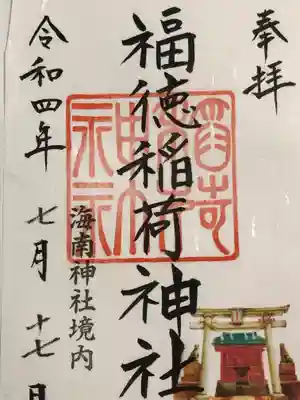 奉拝
福徳稲荷神社
海南神社境内
令和四年 七月 十七日